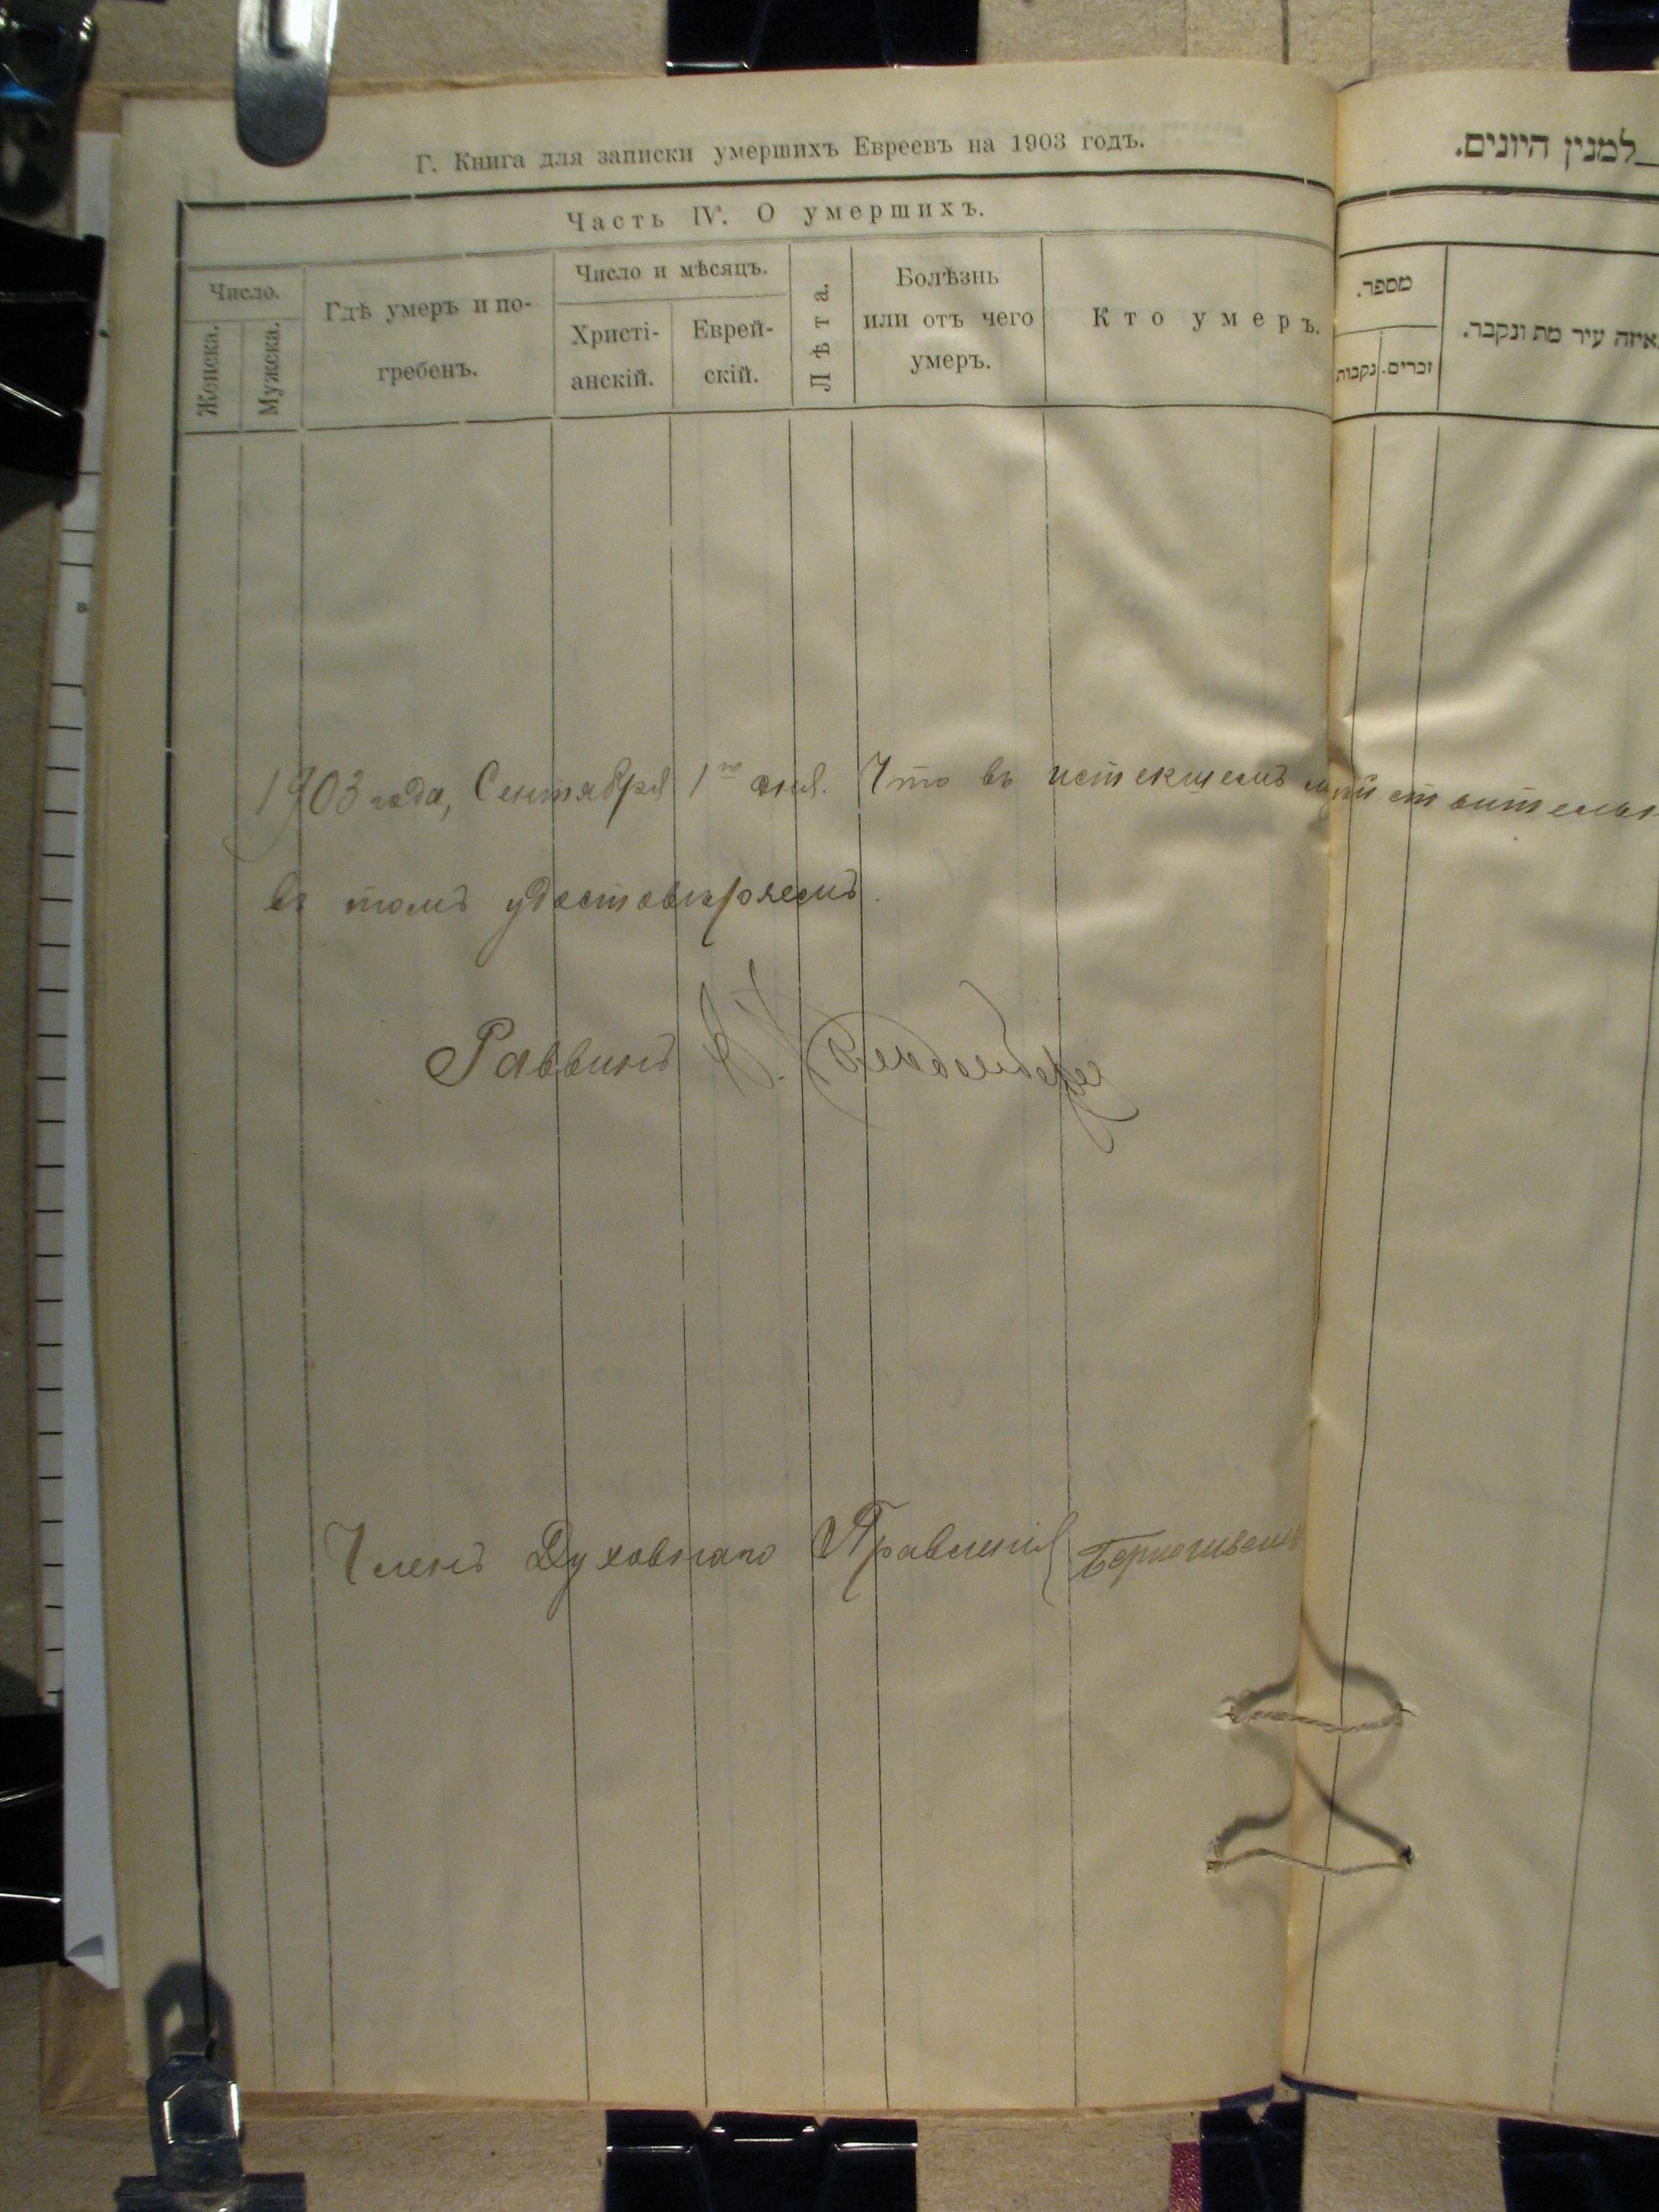 Г. Книга для записки умершихъ Евреевъ на 1903 годъ.
Часть IV. О умершихъ.
Число.
Женска.
Мужска.
Гдѣ умеръ и по-
гребенъ.
Число и мѣсяцъ.
Христі-
анскій.
Еврей-
скій.
Лѣта.
Болѣзнь
или отъ чего
умеръ.
Кто умеръ.
למנין היונים.
מספר.
נקבות
זכרים.
איזה עיר מת ונקבר.
1903 года, Сентября 1го дня. Что въ истекшемъ
въ томъ удостовѣряемъ.
Раввинъ
Членъ Духовнаго Правленія